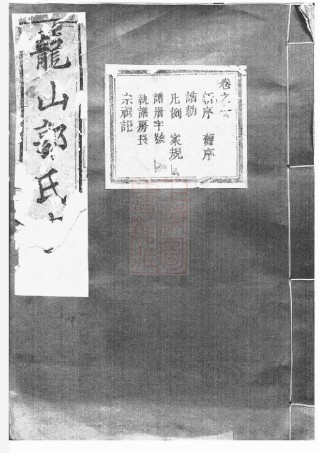 龍山郭氏
卷之首
新序 舊序
誥勅
凡例 家規
譜册字號
執譜房長
宗祠記